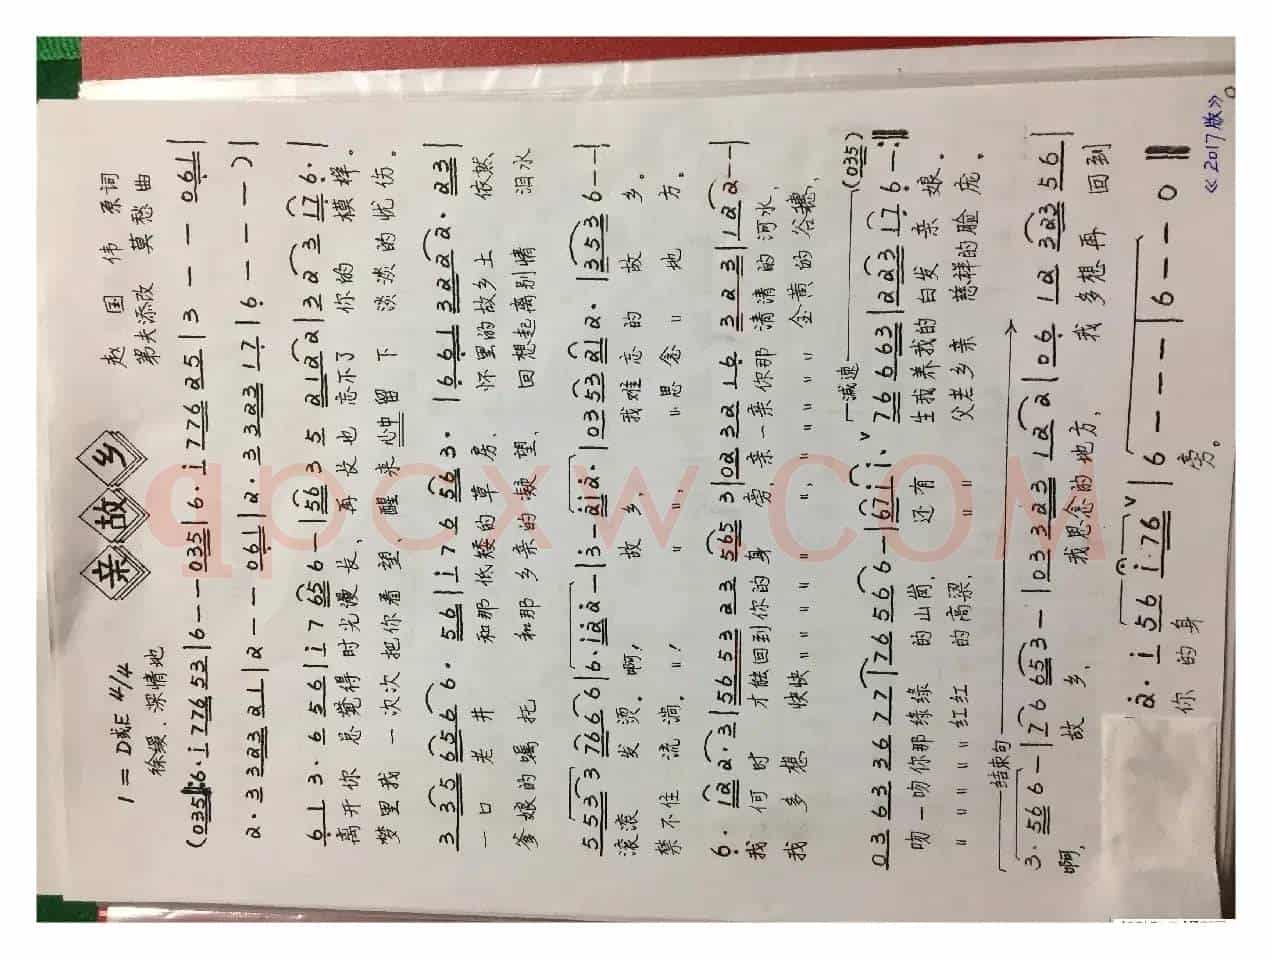 亲故乡
1=D或E 4/4
徐缓.深情地
赵国伟 原词
弟夫添改 莫愁 曲
(035 6·i 776 53 | 6 - - 035 | 6·i 776 25 | 3 - - 061 |
2·3 323 21 | 2 - - 061 | 2·3 323 17 | 6 - - - ) |
6 1 3·6 5 5 6 | i 7 656 6 - | 563 5 2122 | 3 2 3 17 6· |
离开你 总觉得时光漫长, 再长也忘不了 你的模样。
梦里我 一次次把你看望, 醒来心中留下 淡淡的忧伤。
3 35 656 6· 56 | i·76 563· | 661 322 2·23 |
一口老井 和那低矮的草房, 怀里的故乡土 依然
爹娘的嘱托 和那乡亲的凝望, 回想起离别情 泪水
5 53 3 766 6 | 6·i2 2 - | 3 - 2i2· | 035321 2· | 353 6 - - |
滚滚发烫。啊, 故乡, 我难忘的故乡。
禁不住流淌。〃! 〃〃, 〃思念〃地方。
6· 12 2·3 | 5653 23 565 3 | 0232 16 323 | 12 2 - - |
我何时 才能回到你的身旁, 亲一亲你那清清的河水,
我多想 快快〃〃〃〃〃〃, 〃〃〃〃〃金黄的谷穗,
减速 (035)
03 63 36 77 | 7656 6 - | 67i i· ∨ 76663 | 223 17 6 - :‖
吻一吻你那绿绿的山岗, 还有生我养我的白发亲娘。
〃〃〃〃〃红红的高粱, 〃〃父老乡亲慈祥的脸庞。
结束句
3·56 6 - | 76 653 - | 03323 12 2 | 06 12 323 56 |
啊, 故乡, 我思念的地方, 我多想再回到
2·i 56 i·76 ∨ | 6 - - - | 6 - - 0 ‖
你的身旁。
《2017版》
qpcxw.com